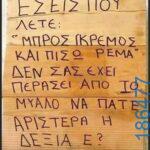 ΕΣΕΙΣ ΠΟΥ
ΛΕΤΕ:
"ΜΠΡΟΣ ΓΚΡΕΜΟΣ
ΚΑΙ ΠΙΣΩ ΡΕΜΑ"
ΔΕΝ ΣΑΣ ΕΧΕΙ
ΠΕΡΑΣΕΙ ΑΠΟ ΤΟ
ΜΥΑΛΟ ΝΑ ΠΑΤΕ
ΑΡΙΣΤΕΡΑ Ή
ΔΕΞΙΑ Ε?
186477